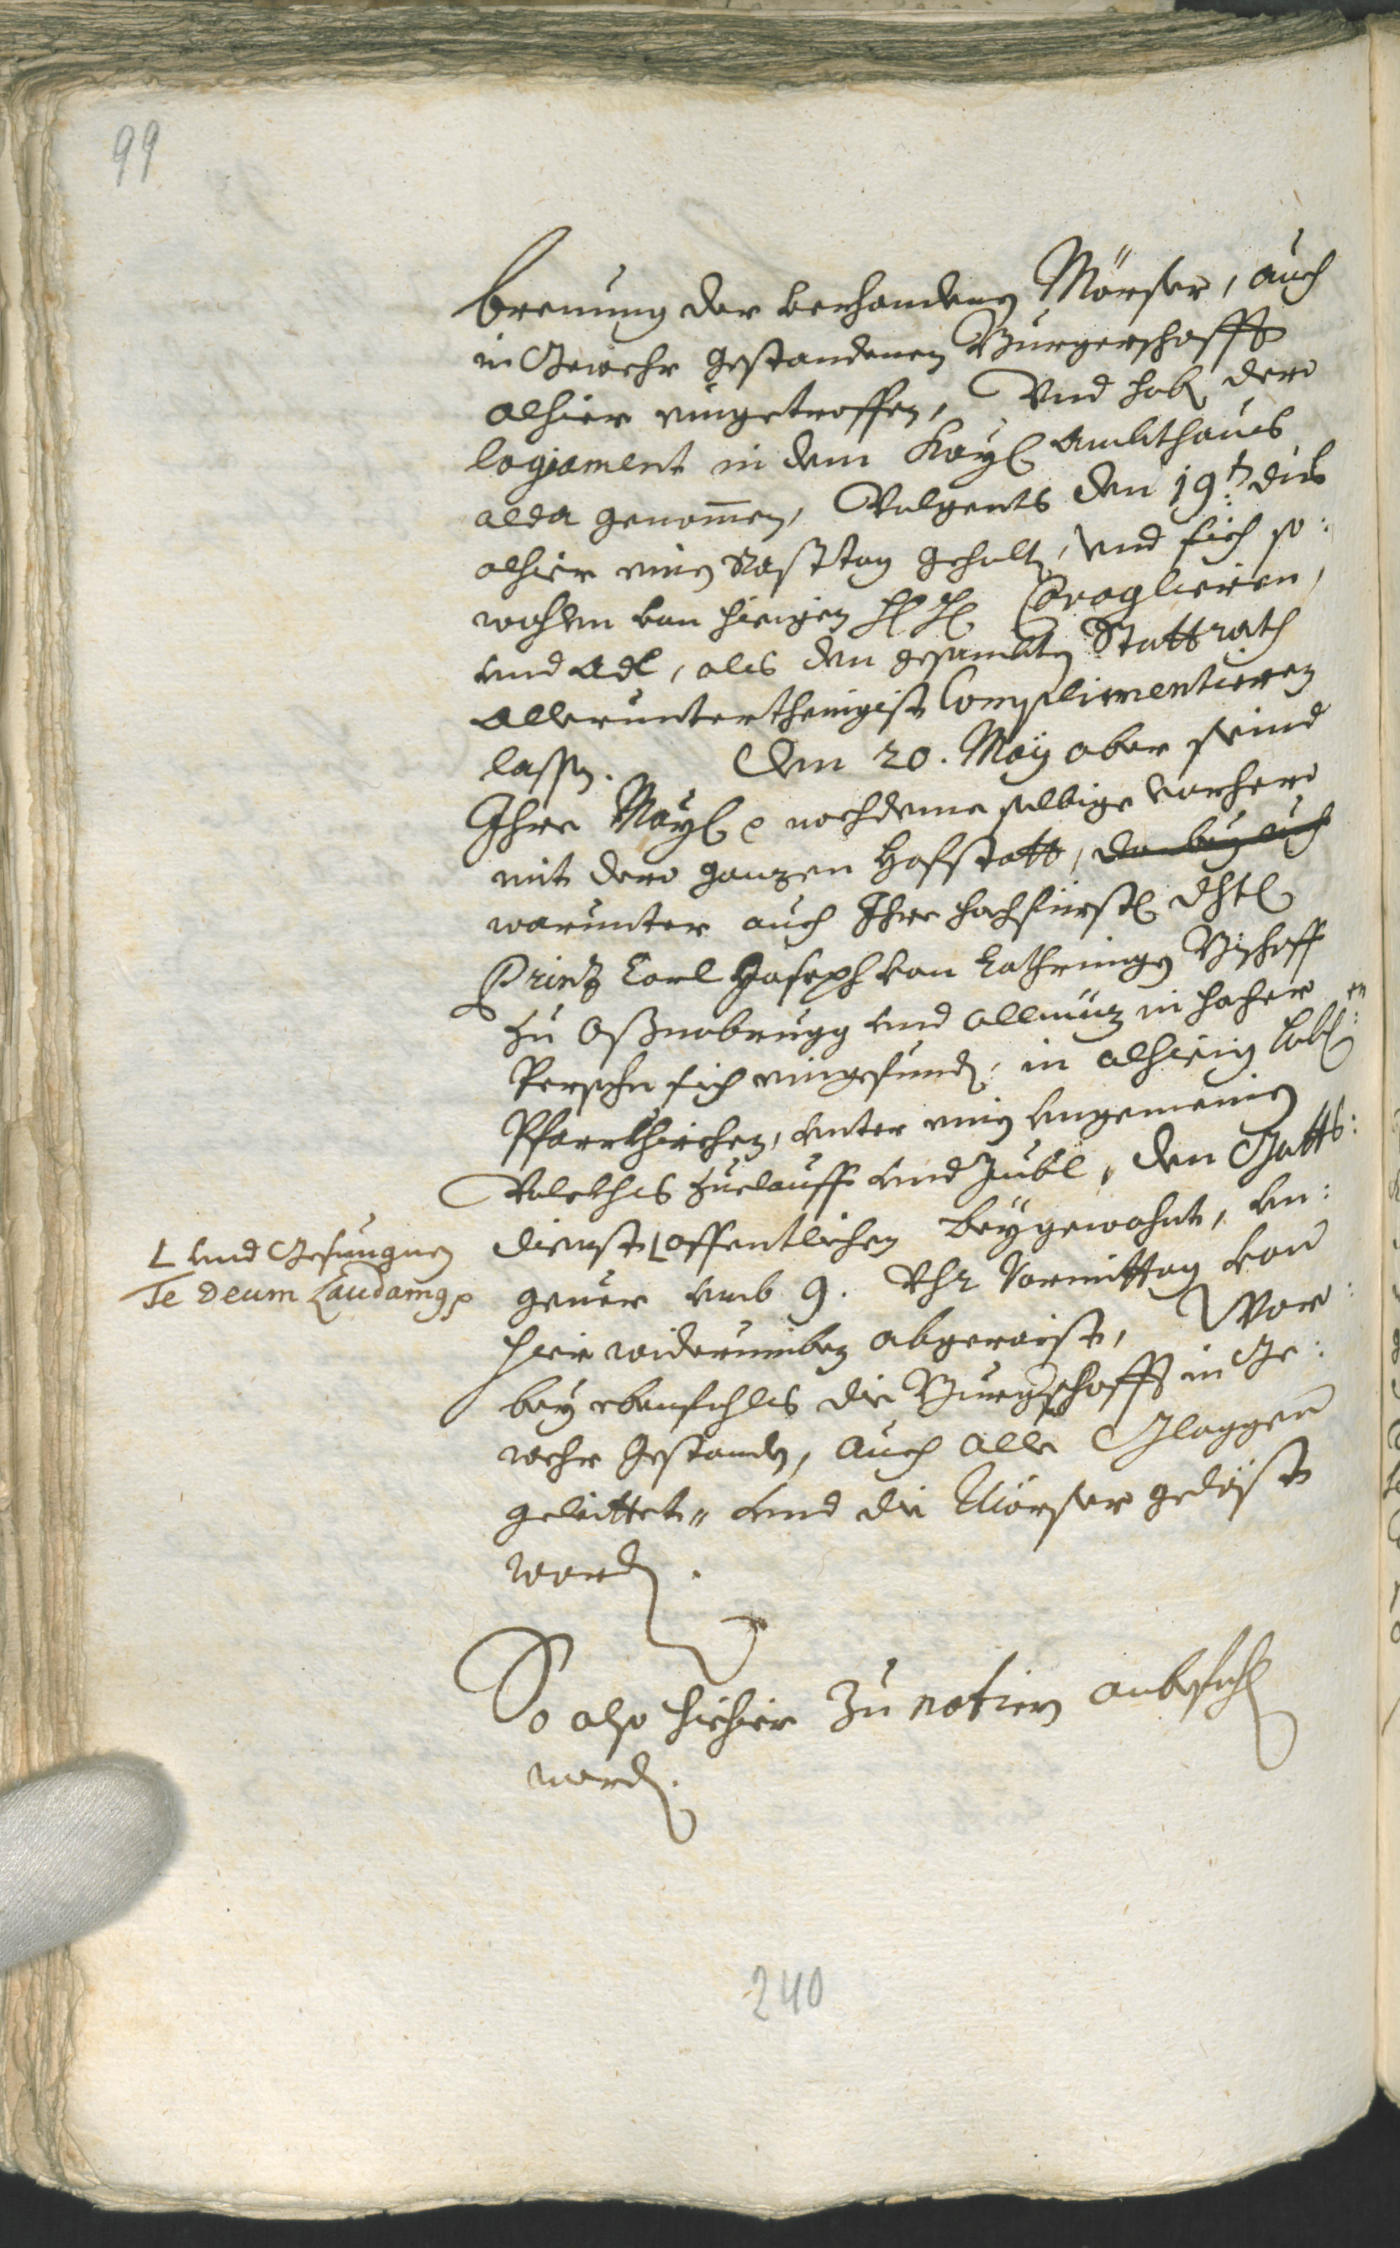 99
brennung der verhandenen Mörser, auch
in Gewehr gestandenen Burgerschafft
alhier eingetroffen, Vnd hab dero
logiament in dem Kayl Ambthaus
alda genommen, Volgents den 19t. dits
alhier einen Rasttag gehalten, vnd sich so:
wohlen von hiesigen H H Cavaglieren,
vnd Adl, als den gesambten Stattrath
Allerunterthenigist Complimentieren
lassen. Den 20. May aber seind
Ihre Mayl nachdeme selbige vorhero
mit dero ganzen Hofstatt, darbey auch
warunter auch Ihre hochfürstl dhtl
Prinz Carl Joseph von Lothringen Bischoff
zu Oßnabrugg vnd Ollmüz in hocher
Persohn sich eingefunden, in alhiesig Löbl: en
Pfarrkhirchen, vnter einen vngemeinen
Volckhs zuelauff vnd Jubl, den Gotts:
dienst L offentlichen beygewohnt, vn:
L vnd Gesungnen
Te Deum Laudamus
geuer vmb 9. Vhr Vormittag von
hier widerumben abgeraist, Wor:
bey ebenfahls die Burgerschafft in Ge:
wehr gestanden, auch alle Gloggen
geleittet, vnd die Mörser gelöst
worden.
So also hiehier zu notiern anbefohl
worden.
240